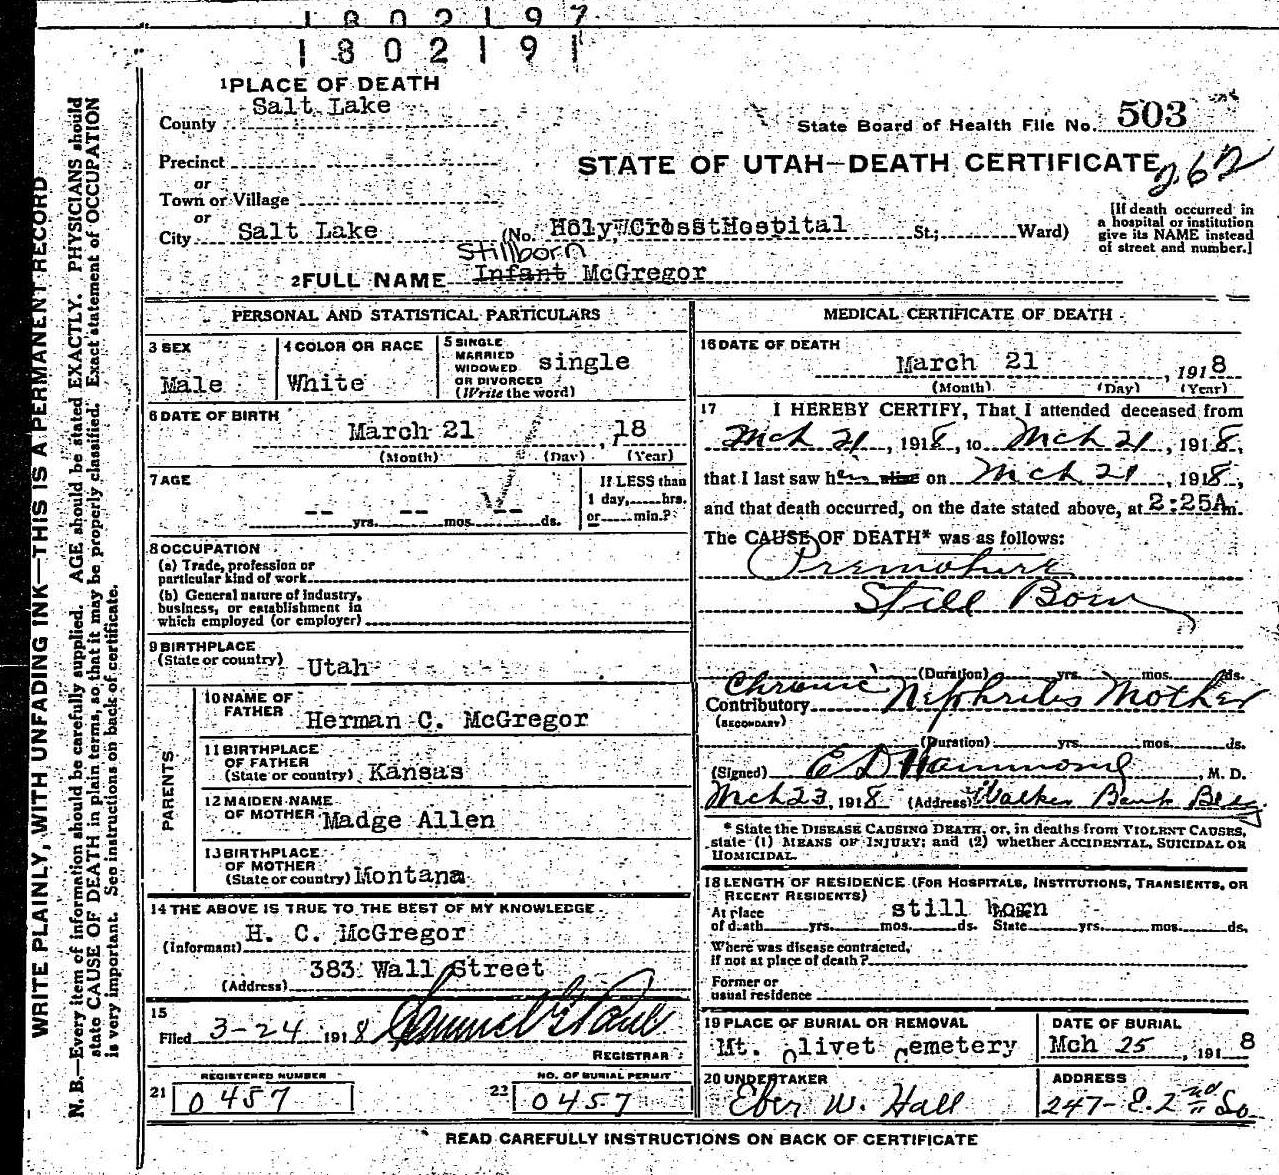 1802197
1802191
1 PLACE OF DEATH
County Salt Lake
State Board of Health File No. 503
Precinct
STATE OF UTAH—DEATH CERTIFICATE 262
or
Town or Village
or
City Salt Lake (No. Holy Cross Hospital St.; Ward)
[If death occurred in
a hospital or institution
give its NAME instead
of street and number.]
Stillborn
2 FULL NAME Infant McGregor
PERSONAL AND STATISTICAL PARTICULARS
3 SEX
Male
4 COLOR OR RACE
White
5 SINGLE
MARRIED
WIDOWED
OR DIVORCED
(Write the word)
single
6 DATE OF BIRTH
March 21, 18
(Month) (Day) (Year)
7 AGE
-- yrs. -- mos. -- ds.
If LESS than
1 day, hrs.
or min.?
8 OCCUPATION
(a) Trade, profession or
particular kind of work
(b) General nature of industry,
business, or establishment in
which employed (or employer)
9 BIRTHPLACE
(State or country) Utah
PARENTS
10 NAME OF
FATHER Herman C. McGregor
11 BIRTHPLACE
OF FATHER
(State or country) Kansas
12 MAIDEN NAME
OF MOTHER Madge Allen
13 BIRTHPLACE
OF MOTHER
(State or country) Montana
14 THE ABOVE IS TRUE TO THE BEST OF MY KNOWLEDGE
(Informant) H. C. McGregor
(Address) 383 Wall Street
15
Filed 3-24 1918 Samuel G Paul
REGISTRAR
21 REGISTERED NUMBER
0457
22 NO. OF BURIAL PERMIT
0457
MEDICAL CERTIFICATE OF DEATH
16 DATE OF DEATH
March 21, 1918
(Month) (Day) (Year)
17 I HEREBY CERTIFY, That I attended deceased from
Mch 21, 1918, to Mch 21, 1918,
that I last saw him alive on Mch 21, 1918,
and that death occurred, on the date stated above, at 2:25A m.
The CAUSE OF DEATH* was as follows:
Premature
Still Born
(Duration) yrs. mos. ds.
Contributory Chronic Nephritis Mother
(SECONDARY)
(Duration) yrs. mos. ds.
(Signed) E D Hammond, M. D.
Mch 23, 1918 (Address) Walker Bank Bldg.
* State the DISEASE CAUSING DEATH, or, in deaths from VIOLENT CAUSES,
state (1) MEANS OF INJURY; and (2) whether ACCIDENTAL, SUICIDAL OR
HOMICIDAL.
18 LENGTH OF RESIDENCE (FOR HOSPITALS, INSTITUTIONS, TRANSIENTS, OR
RECENT RESIDENTS)
still born
At place
of death yrs. mos. ds. State yrs. mos. ds.
Where was disease contracted,
if not at place of death?
Former or
usual residence
19 PLACE OF BURIAL OR REMOVAL
Mt. Olivet Cemetery
DATE OF BURIAL
Mch 25, 1918
20 UNDERTAKER
Eber W. Hall
ADDRESS
247-E. 2nd So.
READ CAREFULLY INSTRUCTIONS ON BACK OF CERTIFICATE
WRITE PLAINLY, WITH UNFADING INK—THIS IS A PERMANENT RECORD
N. B.—Every item of information should be carefully supplied. AGE should be stated EXACTLY. PHYSICIANS should
state CAUSE OF DEATH in plain terms, so that it may be properly classified. Exact statement of OCCUPATION
is very important. See instructions on back of certificate.